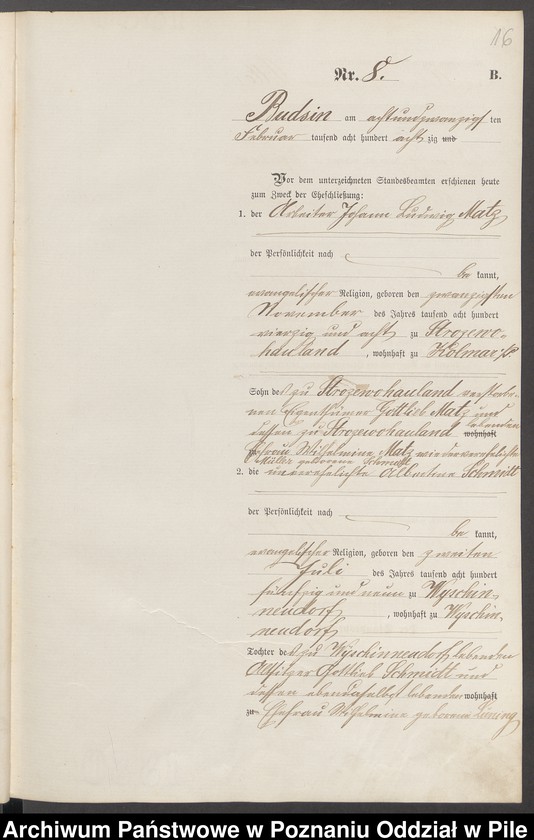 16
Nr. 8. B.
Budsin am achtundzwanzigs ten
Februar tausend acht hundert acht zig und
Vor dem unterzeichneten Standesbeamten erschienen heute
zum Zweck der Eheschließung:
1. der Arbeiter Johann Ludwig Matz
der Persönlichkeit nach
be kannt,
evangelischer Religion, geboren den zwanzigsten
November des Jahres tausend acht hundert
vierzig und acht zu Strozewo-
hauland, wohnhaft zu Kolmar i/P
Sohn des zu Strozewohauland verstorbe-
nen Eigenthümer Gottlieb Matz und
dessen zu Strozewohauland lebenden wohnhaft
zu Ehefrau Wilhelmine Matz wiederverehelichte
Müller geborene Schmidt
2. die unverehelichte Albertine Schmidt
der Persönlichkeit nach
be kannt,
evangelischer Religion, geboren den zweiten
Juli des Jahres tausend acht hundert
fünfzig und neun zu Wyschin-
neudorf, wohnhaft zu Wyschin-
neudorf
Tochter des zu Wyschinneudorf lebenden
Altsitzer Gottlieb Schmidt und
dessen ebendaselbst lebenden wohnhaft
zu Ehefrau Wilhelmine geborene
Archiwum Państwowe w Poznaniu Oddział w Pile